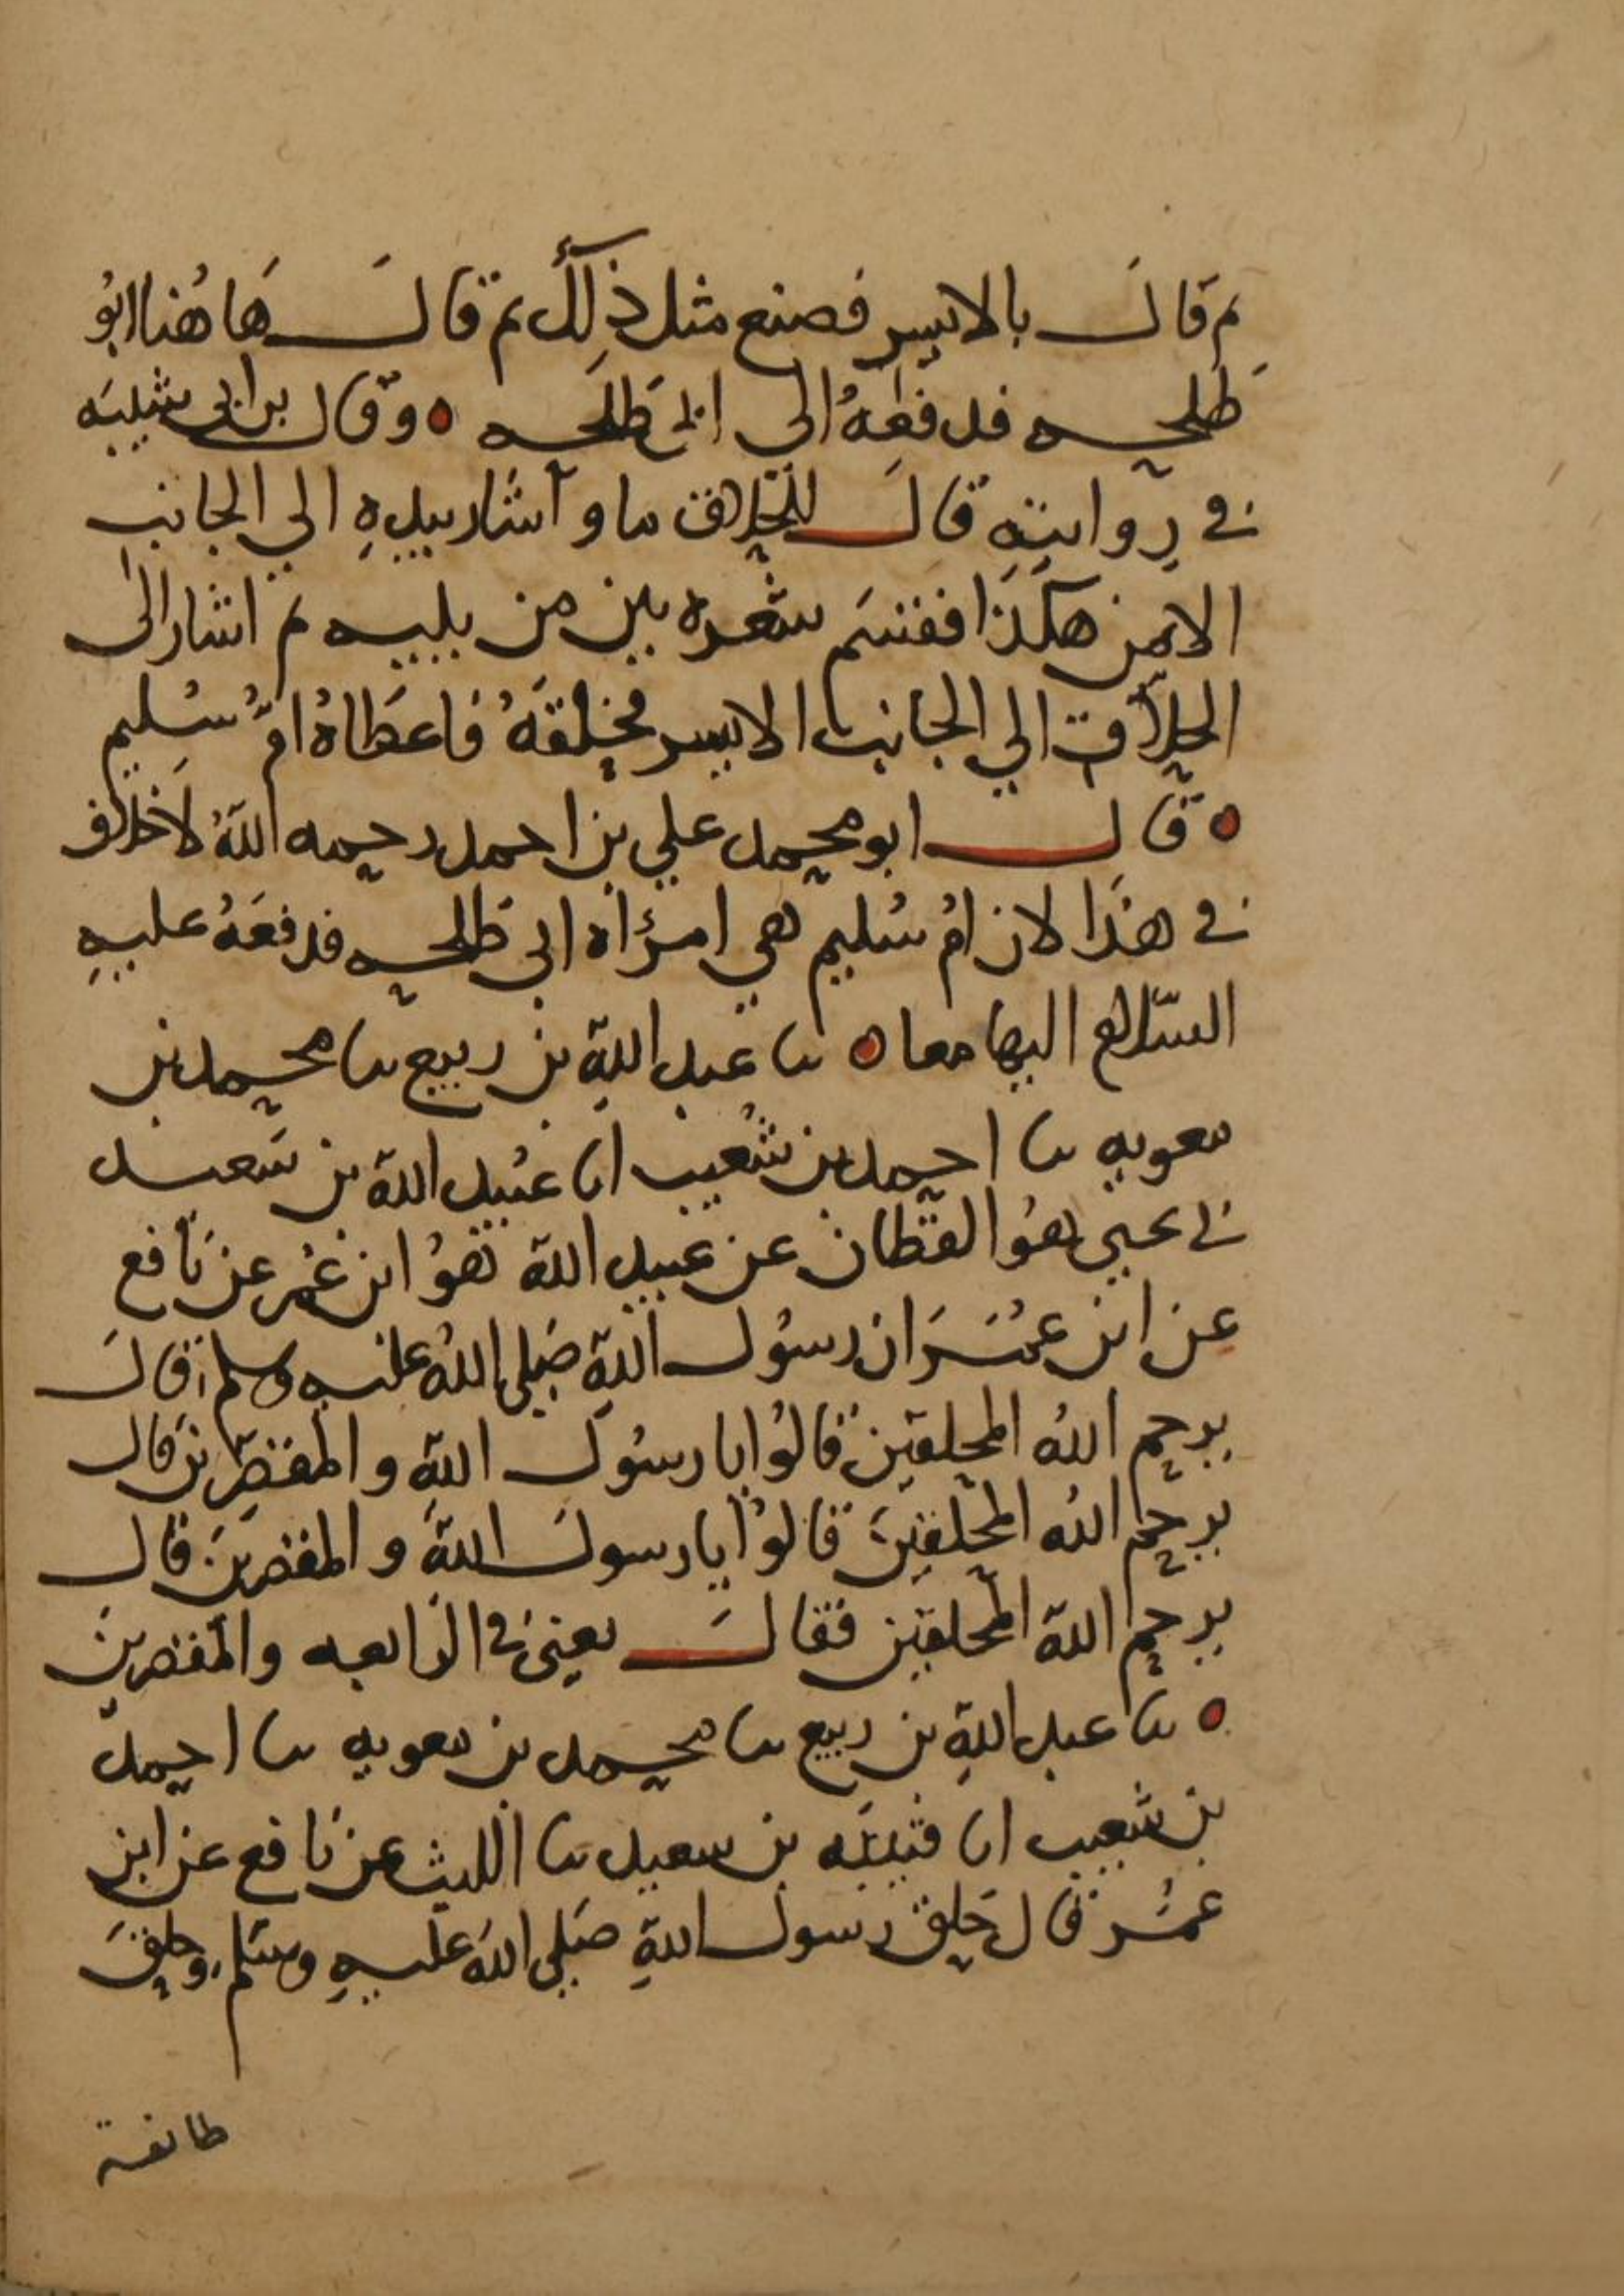 ثم قالَ بالايسر فصنع مثل ذلك ثم قالَ هَا هُنا ابُو
طلحه فدفعَهُ الى ابي طَلحه ٥ وقال بن ابي شيبَه
في رِوايتِهِ قالَ للحلاق ها و آشار بيدهِ الي الجانب
الايمن هكَذَا فقسَم شعره بين من يليه ثم اشار الى
الحلاّق الي الجانب الايسر فحَلقَهُ فاعطَاهُ امَّ سُليم
٥ قال ابو محمد علي بن احمد رحمه اللهُ لَا خلاف
في هذَا لان امُ سُليم هي امرأه ابي طَلحه فدفعَهُ عليهِ
السَّلام اليهما معا ٥ نا عبد اللهِ بن ربيع نا محمد بن
معويه نا احمد بن شُعيب انا عُبيد الله بن سَعيد
نا يحيي هُو القطان عن عبيد الله هُو ابن عُمر عن نافع
عن ابن عمُر ان رسُول اللهِ صَلى اللهُ عليه وسلم قالَ
يرحم اللهُ المحلقين قالُوا يا رسُول اللهِ والمقصّرين قال
يرحم اللهُ المحَلّقِينَ قالُوا يا رسولَ اللهَ والمقصرينَ قال
يرحم الله المحلقين فقالَ يعني في الرابعه والمقصرين
٥ نا عبد اللهِ بن ربيع نا محمد بن معويه نا احمد
بن شعيب انا قتيبَه بن سعيد نا الليث عن نافع عن ابن
عمُر قال حَلق رسول اللهِ صَلى اللهَ عليهِ وسَلم وحلقَ
طائفة